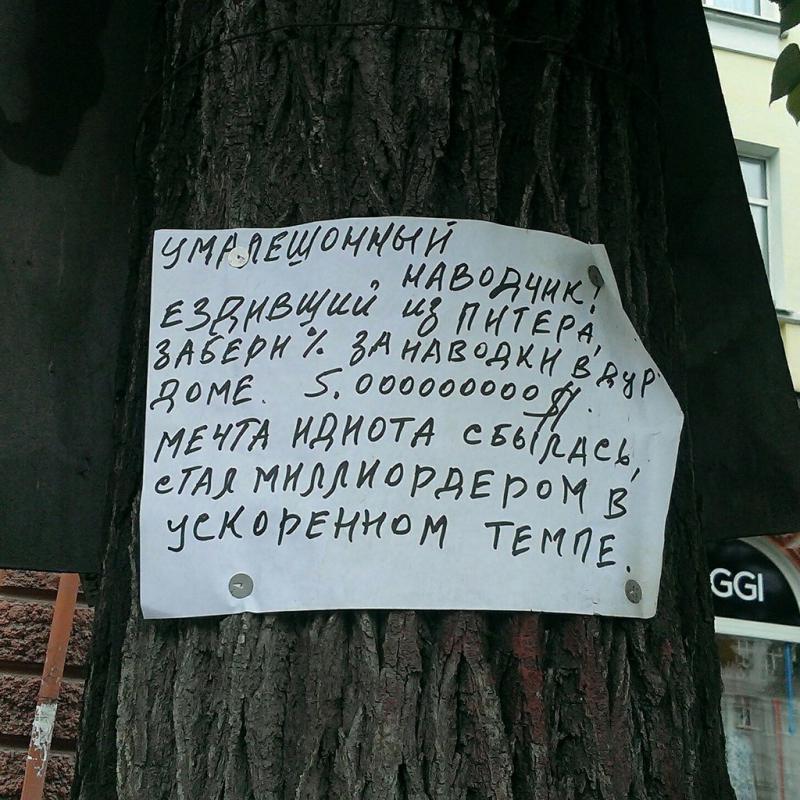 УМАЛЕШОННЫЙ
НАВОДЧИК!
ЕЗДИВЩИЙ ИЗ ПИТЕРА,
ЗАБЕРИ % ЗА НАВОДКИ В ДУР
ДОМЕ. 5.000000000$.
МЕЧТА ИДИОТА СБЫЛАСЬ,
СТАЛ МИЛЛИОРДЕРОМ В
УСКОРЕННОМ ТЕМПЕ.
GGI